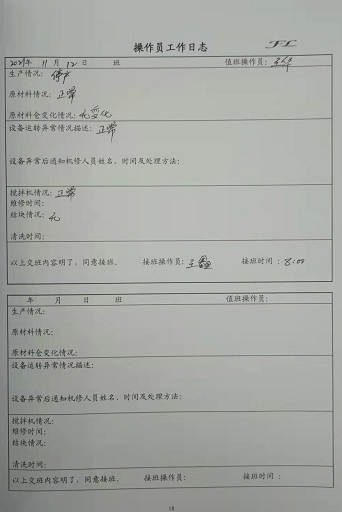 操作员工作日志
2021年 11月 12日 班 值班操作员:
生产情况: 停产
原材料情况: 正常
原材料仓变化情况: 无变化
设备运转异常情况描述: 正常
设备异常后通知机修人员姓名、时间及处理方法:
搅拌机情况: 正常
维修时间:
结块情况: 无
清洗时间:
以上交班内容明了,同意接班。 接班操作员: 王 接班时间: 8:00
年 月 日 班 值班操作员:
生产情况:
原材料情况:
原材料仓变化情况:
设备运转异常情况描述:
设备异常后通知机修人员姓名、时间及处理方法:
搅拌机情况:
维修时间:
结块情况:
清洗时间:
以上交班内容明了,同意接班。 接班操作员: 接班时间:
18